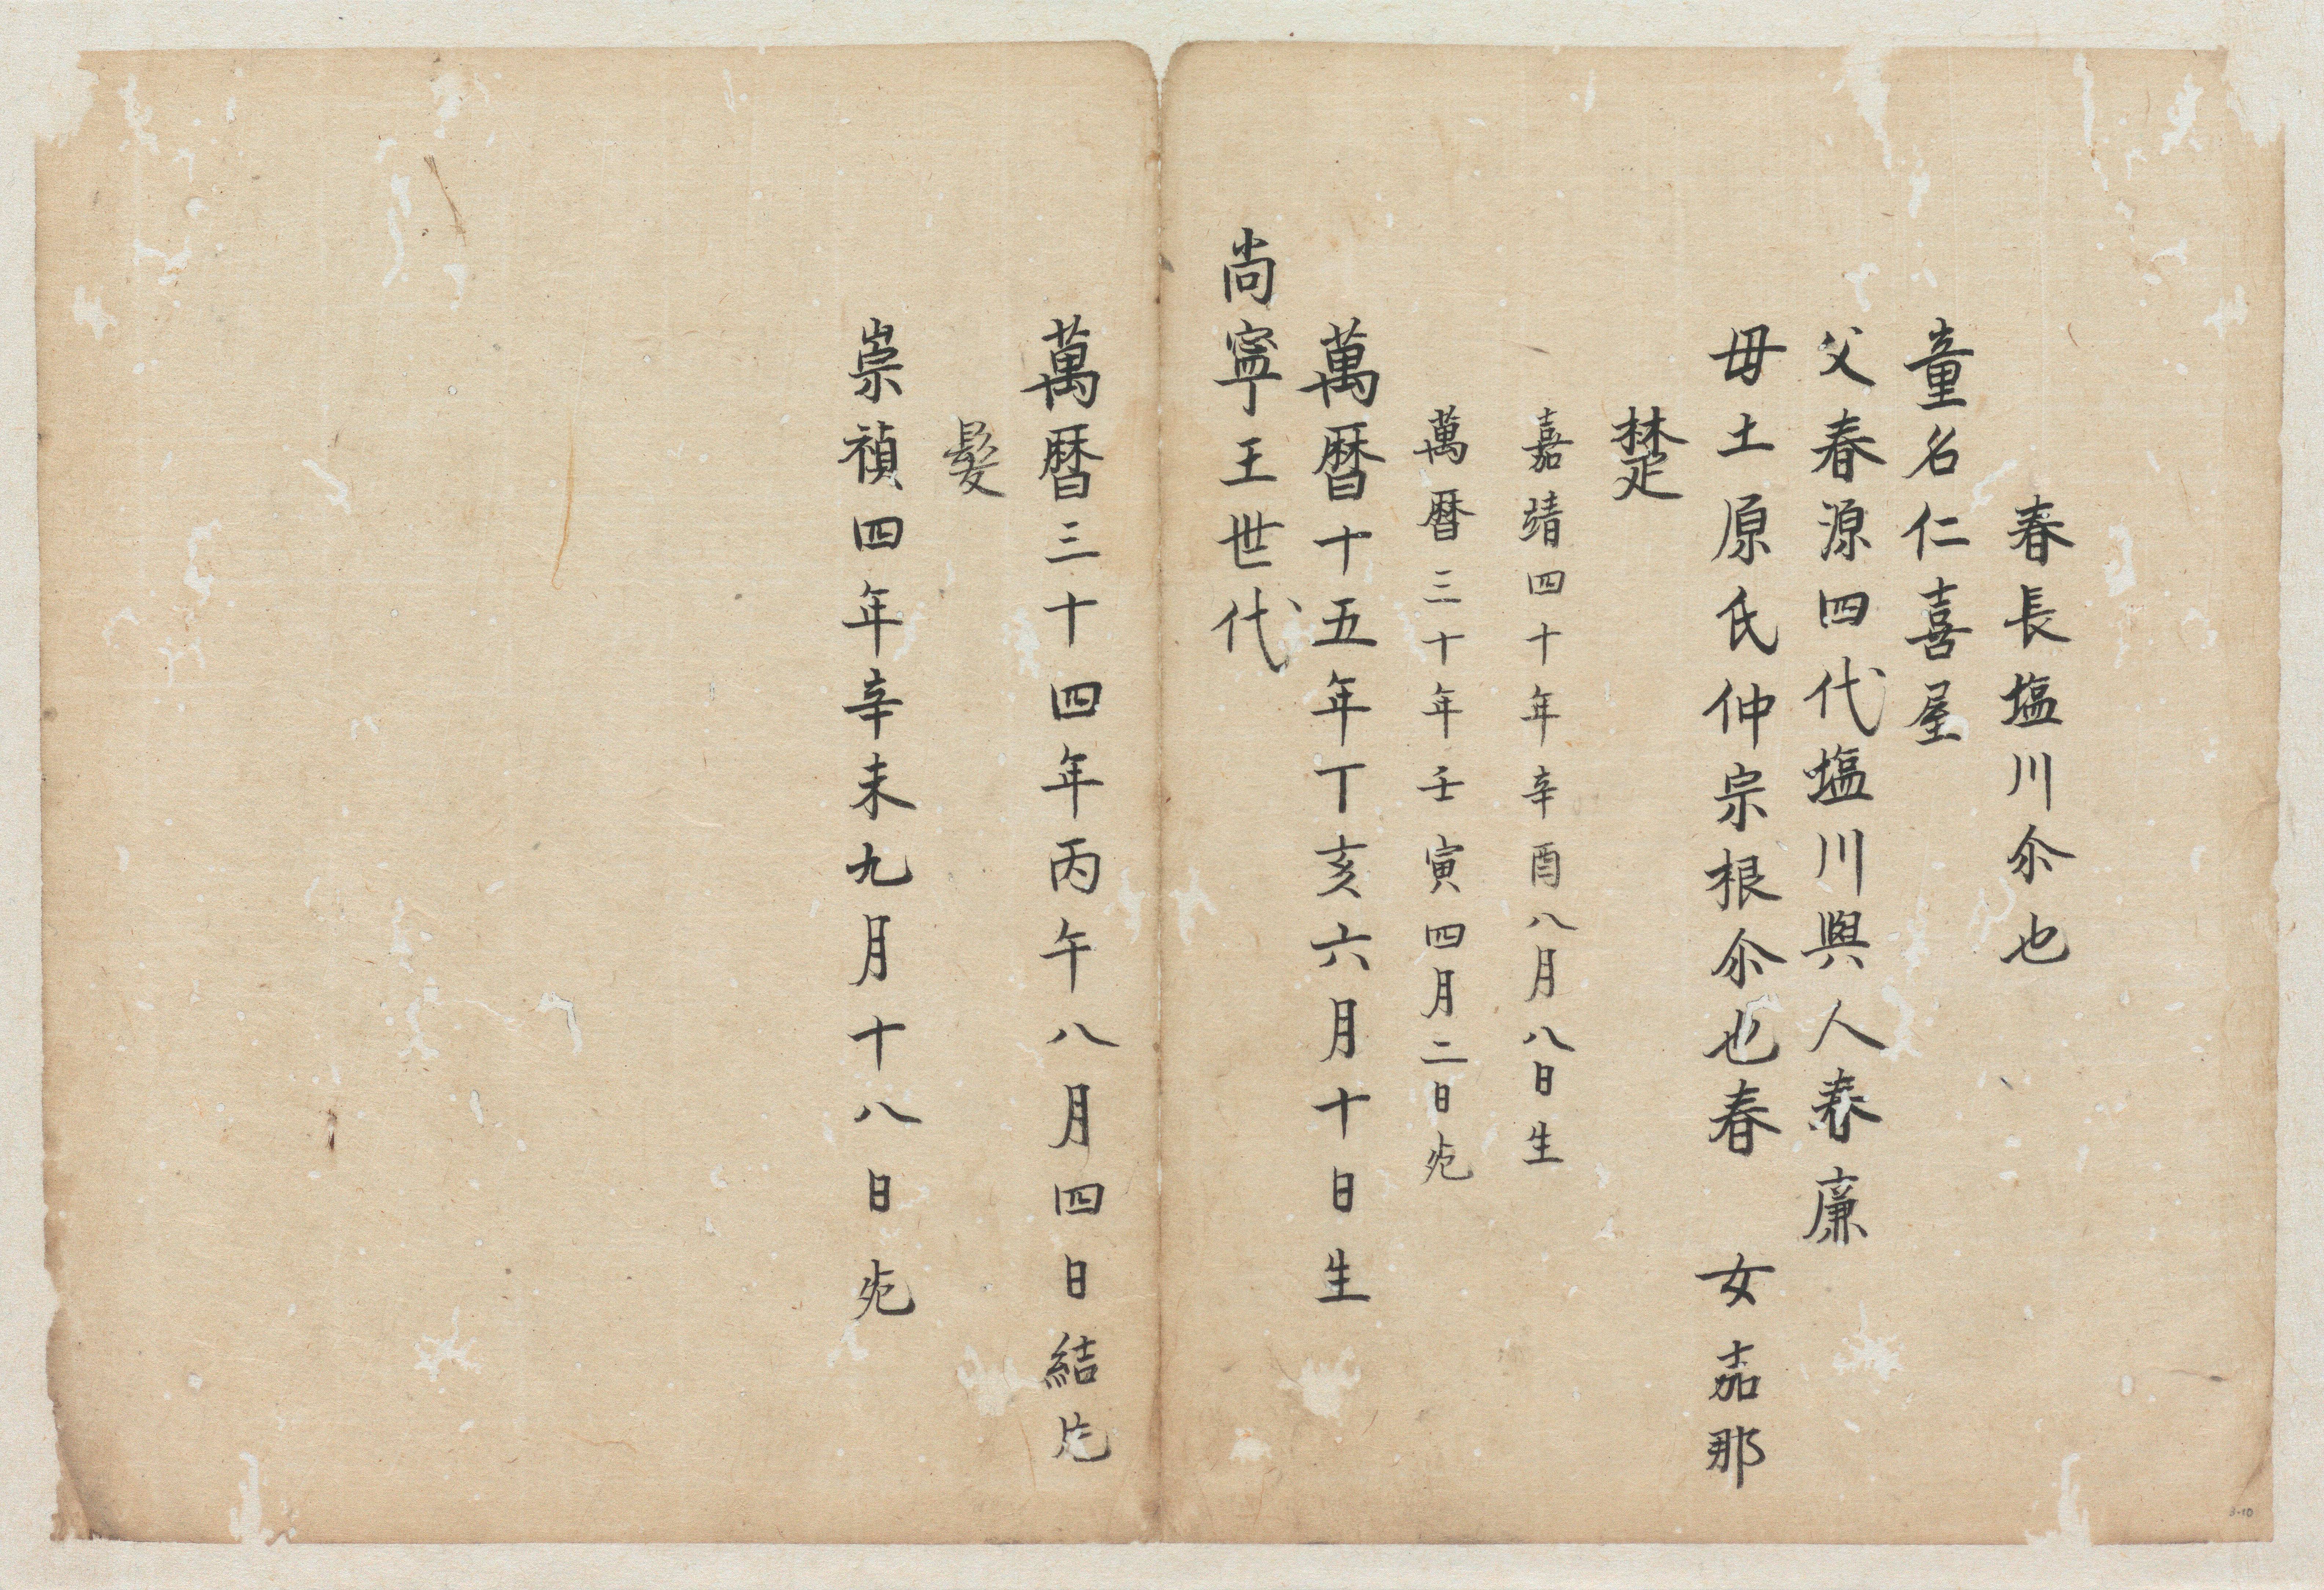 春長塩川尒也
童名仁喜屋
父春源四代塩川與人春廉
母土原氏仲宗根尒也春 女嘉那
楚
嘉靖四十年辛酉八月八日生
萬暦三十年壬寅四月二日死
萬暦十五年丁亥六月十日生
尚寧王世代
萬暦三十四年丙午八月四日結片
髮
崇禎四年辛未九月十八日死
3-10